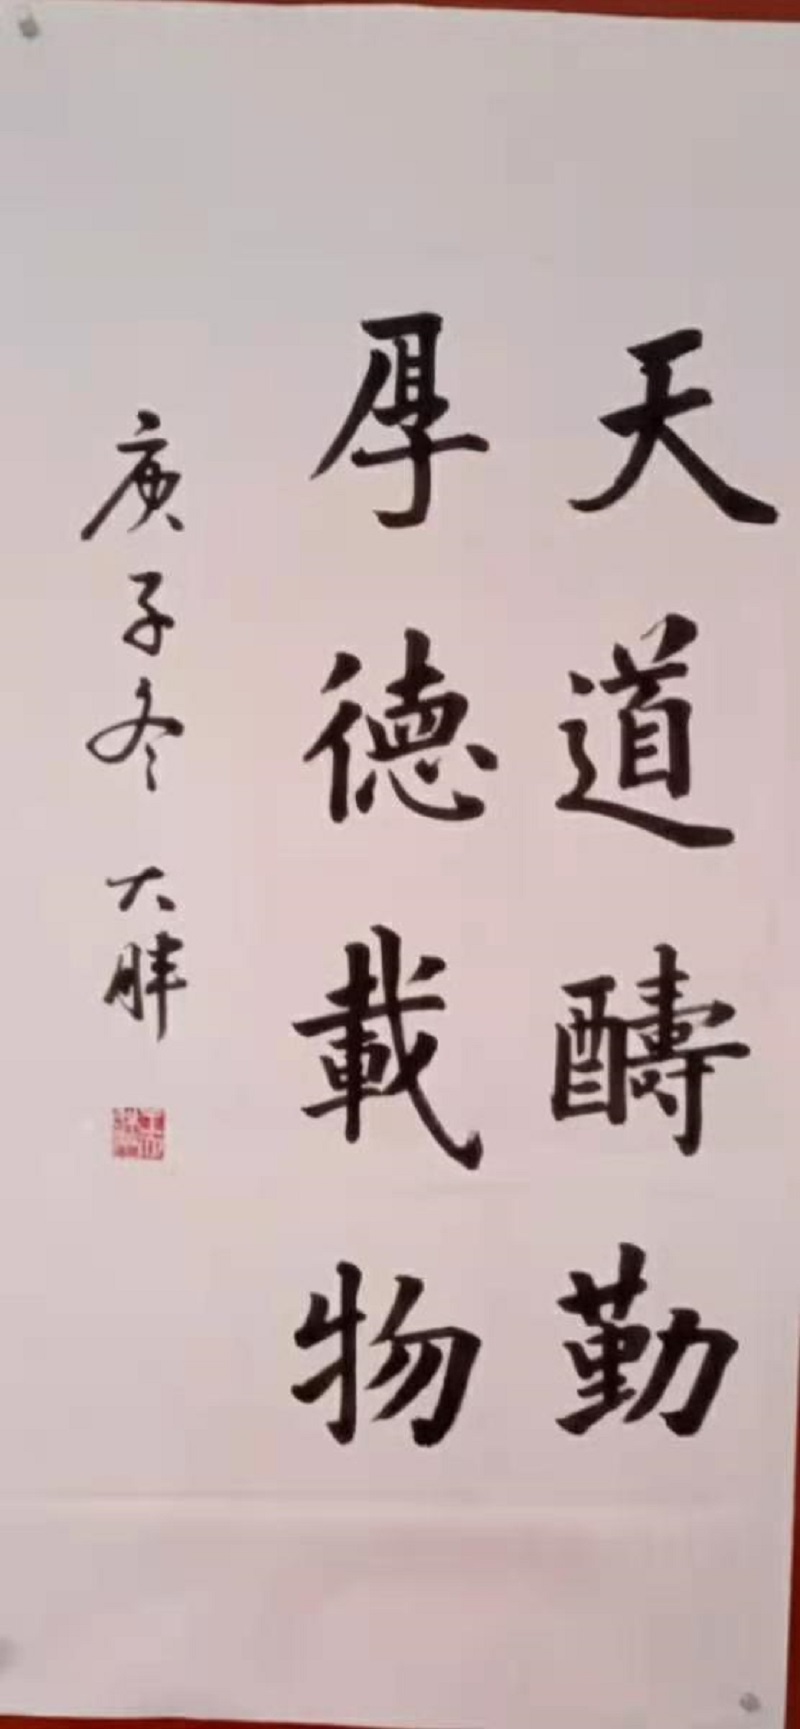 天道酬勤
厚德載物
庚子冬 大胖